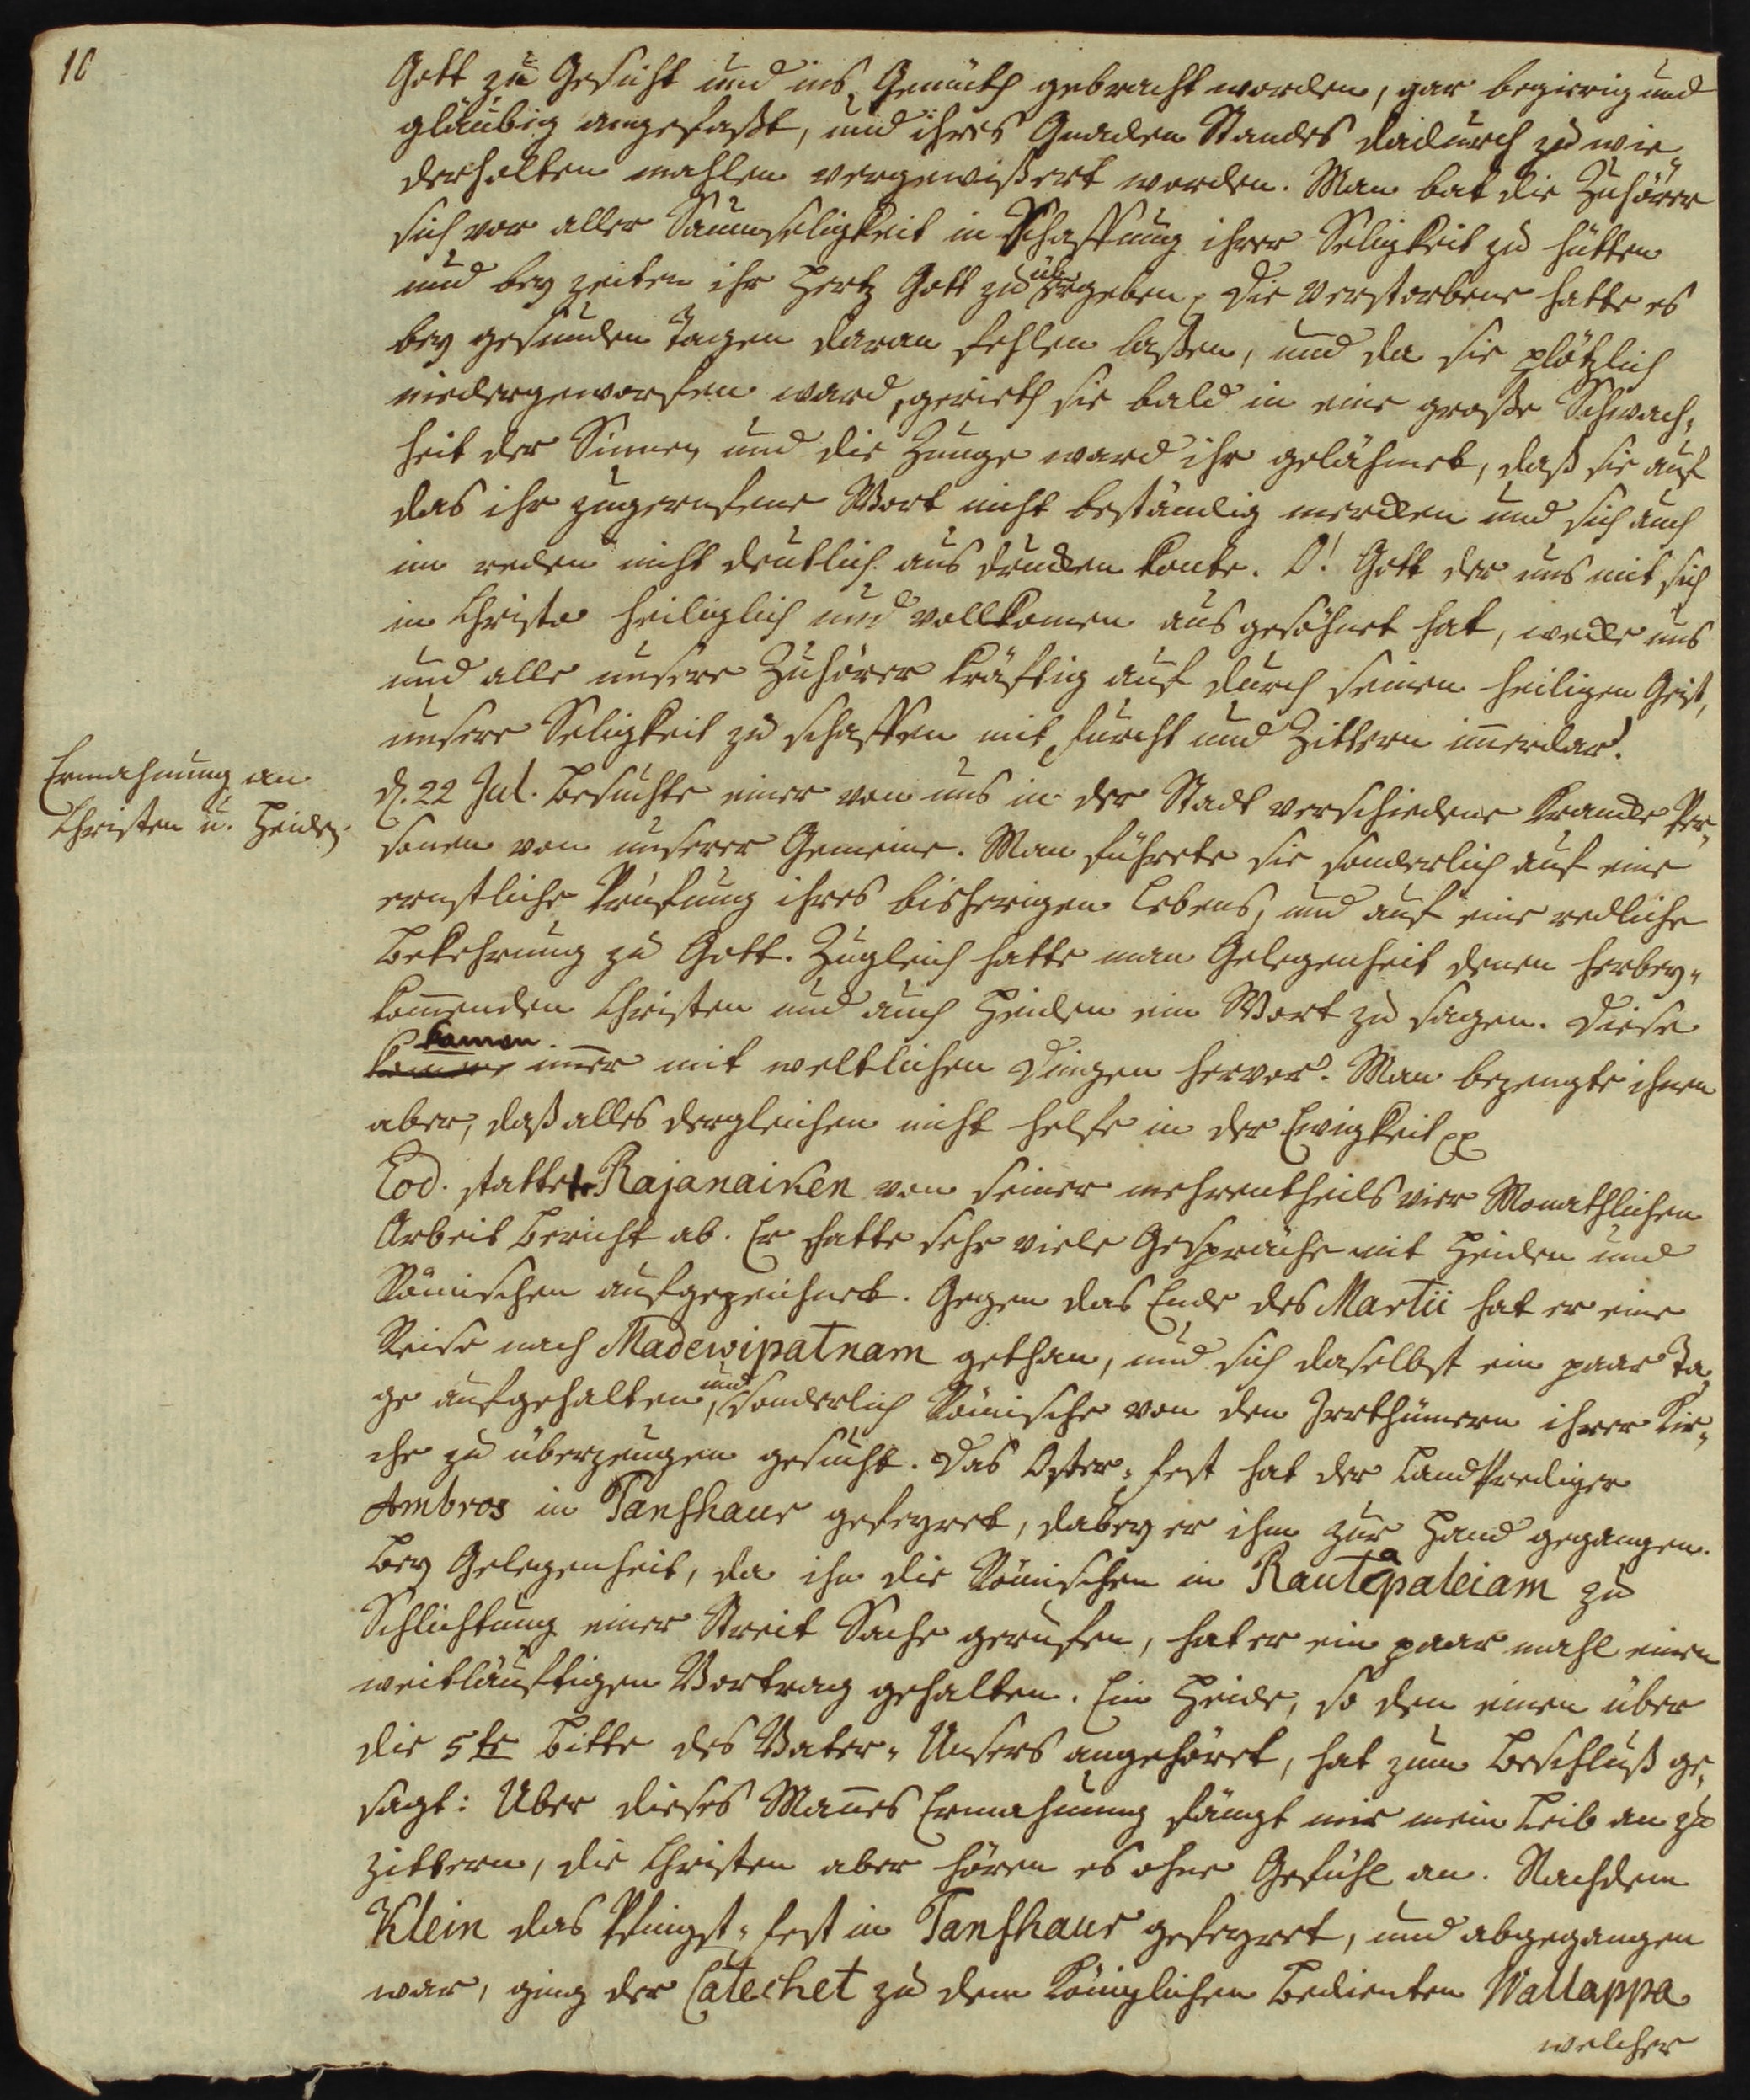 10
Gott zu Gesicht und ins Gemüth gebracht worden, gar begierig und
gläubig angefaßt, und ihres Gnaden Standes dadurch zu wie
derholten mahlen vergewißert worden. Man bat die Zuhörer
sich vor aller Saumseligkeit in Schaffung ihrer Seligkeit zu hütten
und bey zeiten ihr Hertz Gott zu übergeben, die Verstorbene hatte es
bey gesunden Tagen daran fehlen laßen, und da sie plötzlich
niedergeworfen ward, gerieth sie bald in eine große Schwach„
heit der Sinnen, und die Zunge ward ihr gelähmet, daß sie auf
das ihr zugerufene Wort nicht beständig mercken und sich auch
im reden nicht deutlich aus drucken konte. O! Gott der uns mit sich
in Christo heiliglich und vollkomen aus gesöhnet hat, wecke uns
und alle unsere Zuhörer kräftig auf durch seinen heiligen Geist,
unsere Seligkeit zu schaffen mit furcht und Zittern im̄erdar!
Ermahnung an
Christen u. Heiden.
d. 22 Jul. besuchte einer von uns in der Stadt verschiedene krancke Per„
sonen von unserer Gemeine. Man führete sie sonderlich auf eine
ernstliche Prüfung ihres bisherigen Lebens, und auf eine redliche
Bekehrung zu Gott. Zugleich hatte man Gelegenheit denen herbey„
kom̄enden Christen und auch Heiden ein Wort zu sagen. Diese
kamen im̄er mit weltlichen Dingen hervor. Man bezeugte ihnen
aber, daß alles dergleichen nicht helfe in der Ewigkeit pp
Eod. stattete Rajanaiken von seiner mehrentheils vier Monathlichen
Arbeit Bericht ab. Er hatte sehr viele Gespräche mit Heiden und
Römischen aufgezeichnet. Gegen das Ende des Martii hat er eine
Reise nach Madewipatnam gethan, und sich daselbst ein paar Ta„
ge aufgehalten, und sonderlich Römische von den Irrthümern ihrer Kir„
che zu überzeugen gesucht. Das Oster„fest hat der LandPrediger
Ambros in Tanshaur gefeyret, dabey er ihm zur Hand gegangen.
Bey Gelegenheit, da ihn die Römischen in Rautapaleiam zu
Schlichtung einer Streit Sache gerufen, hat er ein paar mahl einen
weitläuftigen Vortrag gehalten. Ein Heide, so den einen über
die 5te Bitte des Vater„Unsers angehöret, hat zum Beschluß ge„
sagt: Uber dieses Man̄es Ermahnung fängt mir mein Leib an zu
zittern, die Christen aber hören es ohne Gefühl an. Nachdem
Klein das Pfingst„fest in Tanshaur gefeyret, und abgegangen
war, ging der Catechet zu dem Königlichen Bedienten Wallappa
welcher